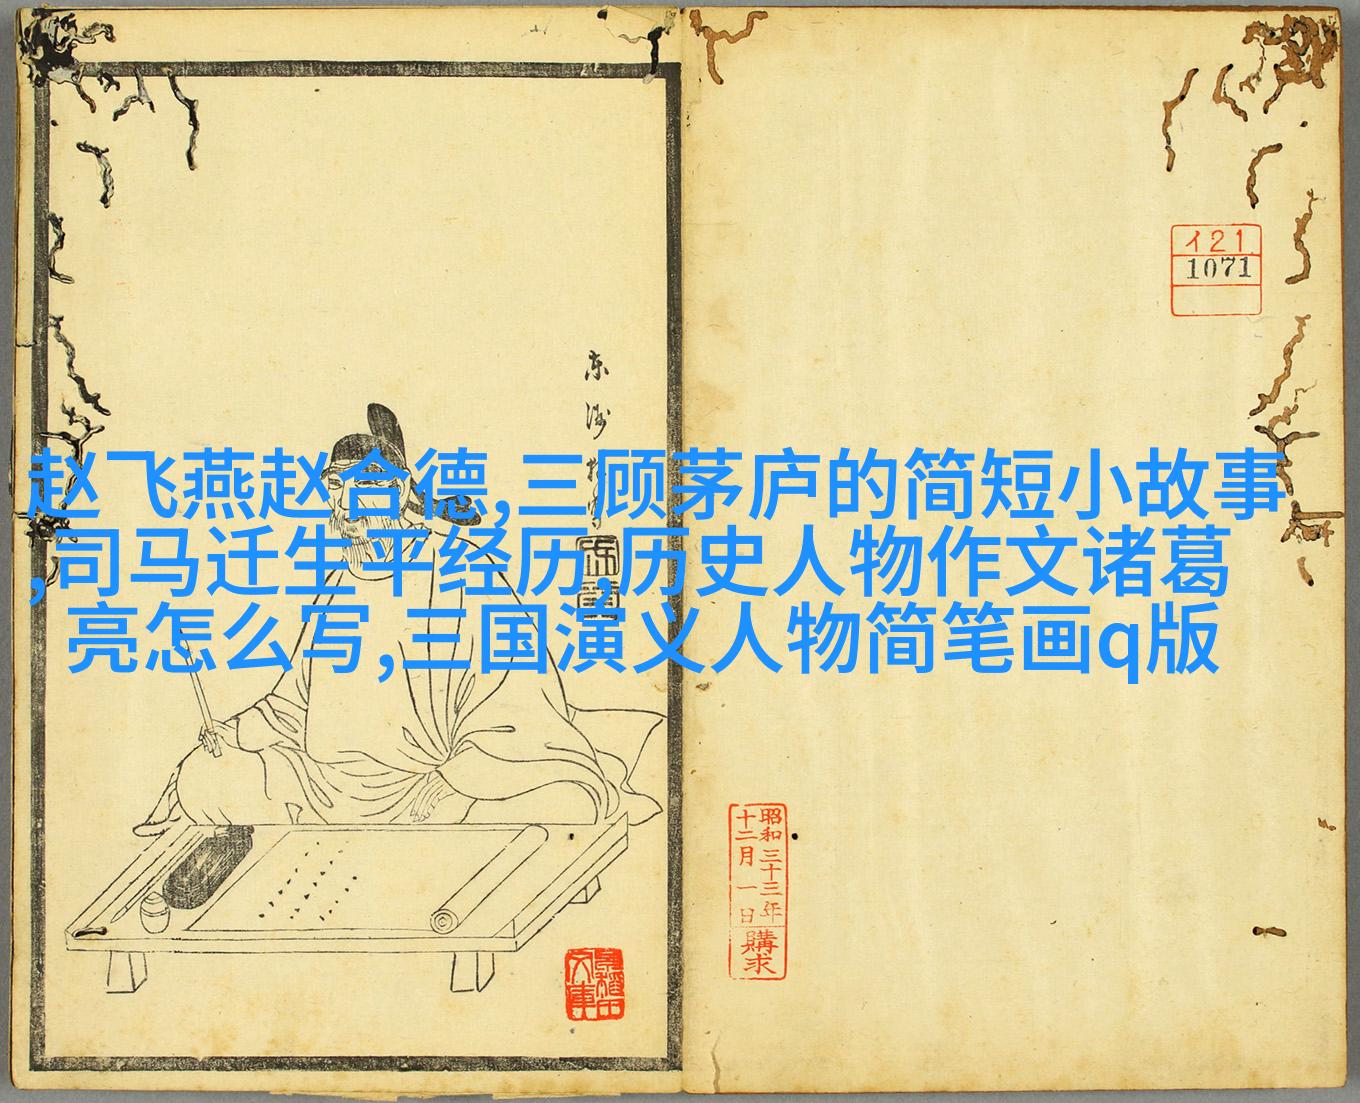 赵飞燕赵合德,三顾茅庐的简短小故事
,司马迁生平经历,历史人物作文诸葛
亮怎么写,三国演义人物简笔画q版
东
イ21
1071
昭和三十三年
十二月一日
購求
文庫